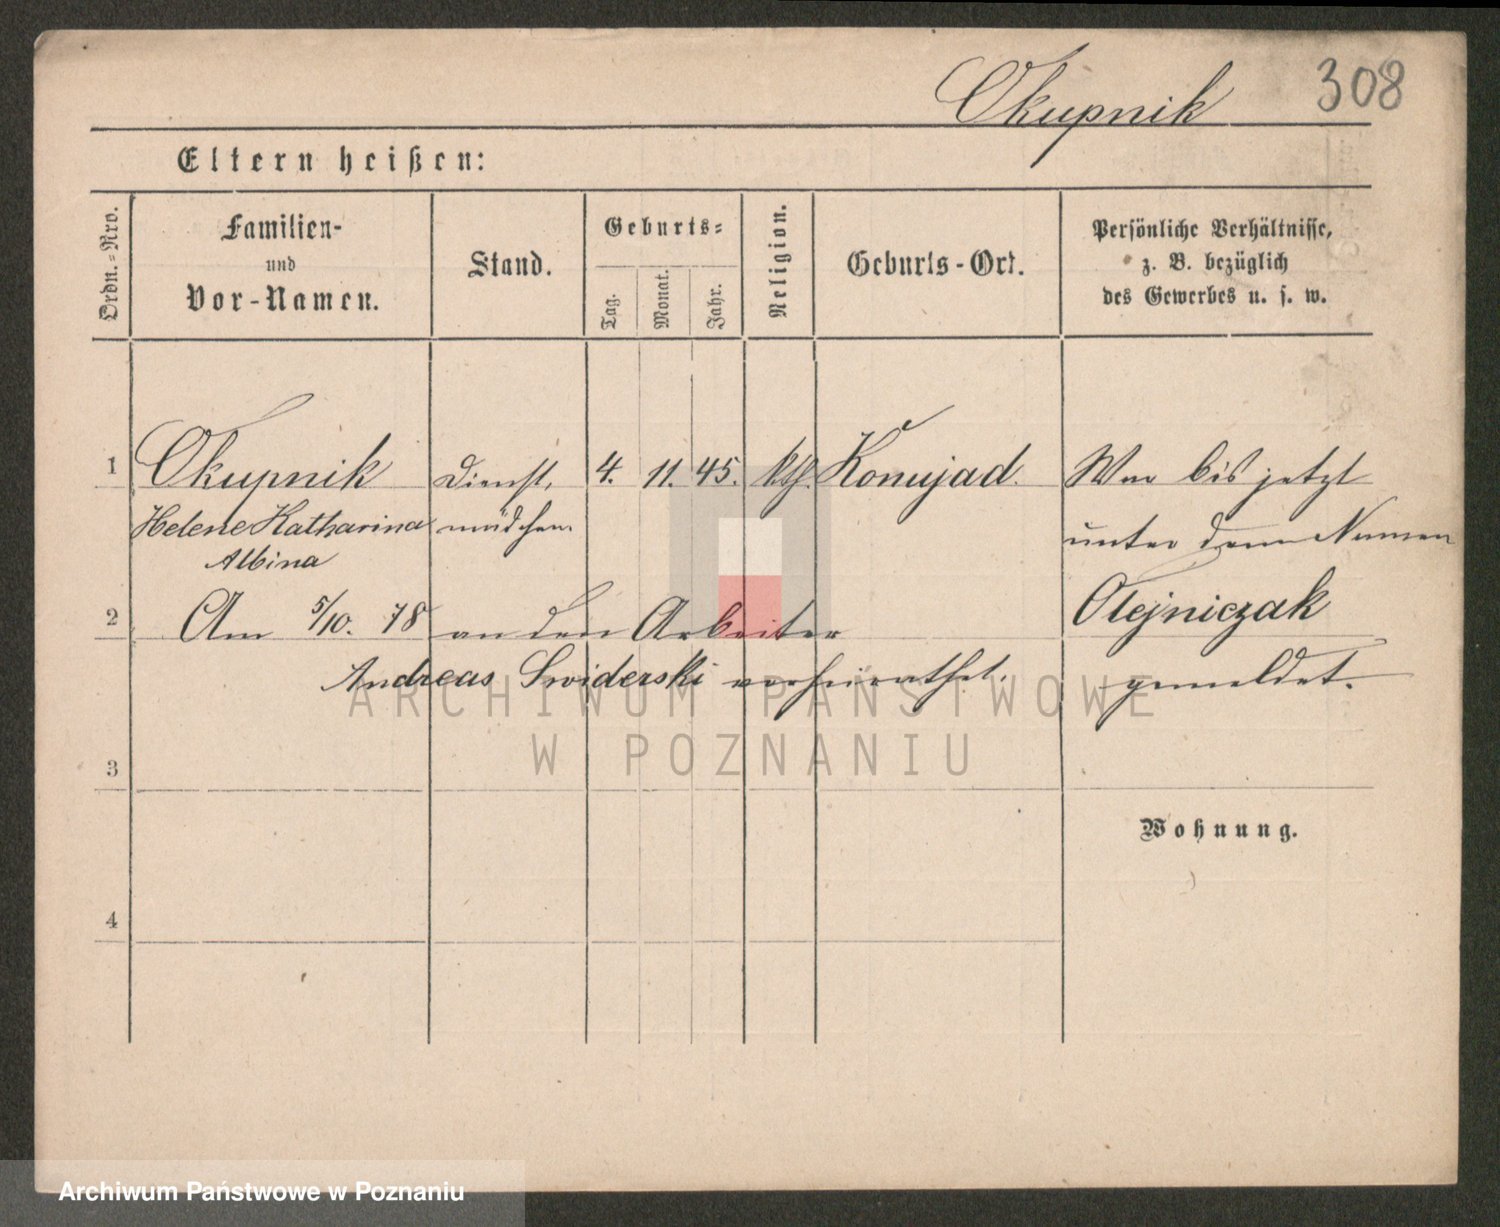 Okupnik 308
Eltern heißen:
Ordn.-Nro.
Familien-
und
Vor-Namen.
Stand.
Geburts-
Tag.
Monat.
Jahr.
Religion.
Geburts-Ort.
Persönliche Verhältnisse,
z. B. bezüglich
des Gewerbes u. s. w.
1 Okupnik Dienst, 4. 11. 45. kth. Konujad. War bis jetzt
Helene Katharina mädchen unter dem Namen
Albina
2 Am 5/10. 78 an den Arbeiter Olejniczak
Andreas Swiderski verheirathet. gemeldet.
ARCHIWUM PAŃSTWOWE
W POZNANIU
3
Wohnung.
4
Archiwum Państwowe w Poznaniu